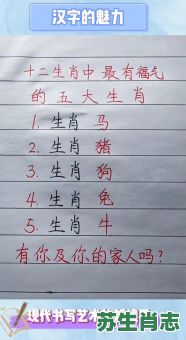 汉字的魅力
十二生肖中最有福气
的五大生肖
1. 生肖 马
2. 生肖 猪
3. 生肖 狗
4. 生肖 兔
5. 生肖 牛
有你及你的家人吗?
现代书写艺术
苏生肖志